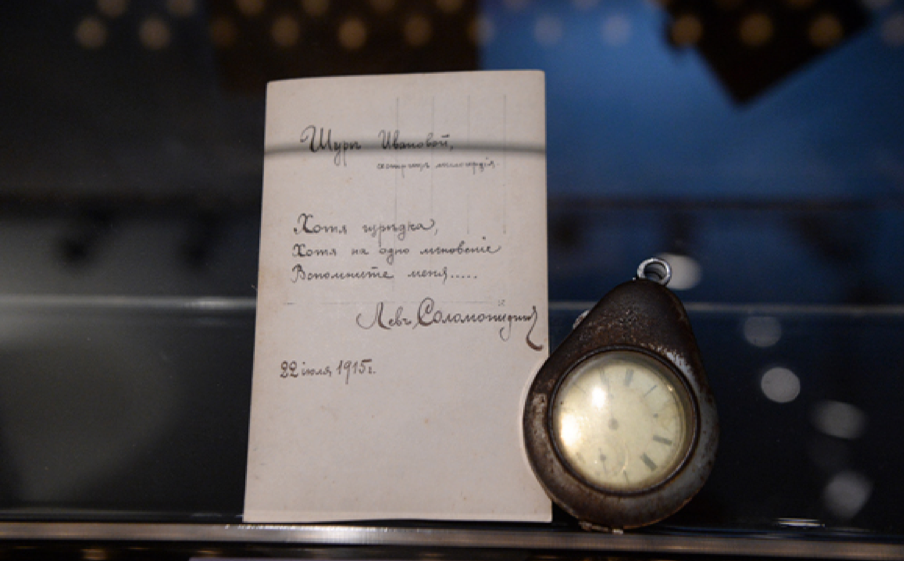 Шурѣ Ивановой,
сестрицѣ милосердія.
Хотя изрѣдка,
Хотя на одно мгновеніе
Вспомните меня.....
Левъ
22 іюля 1915г.